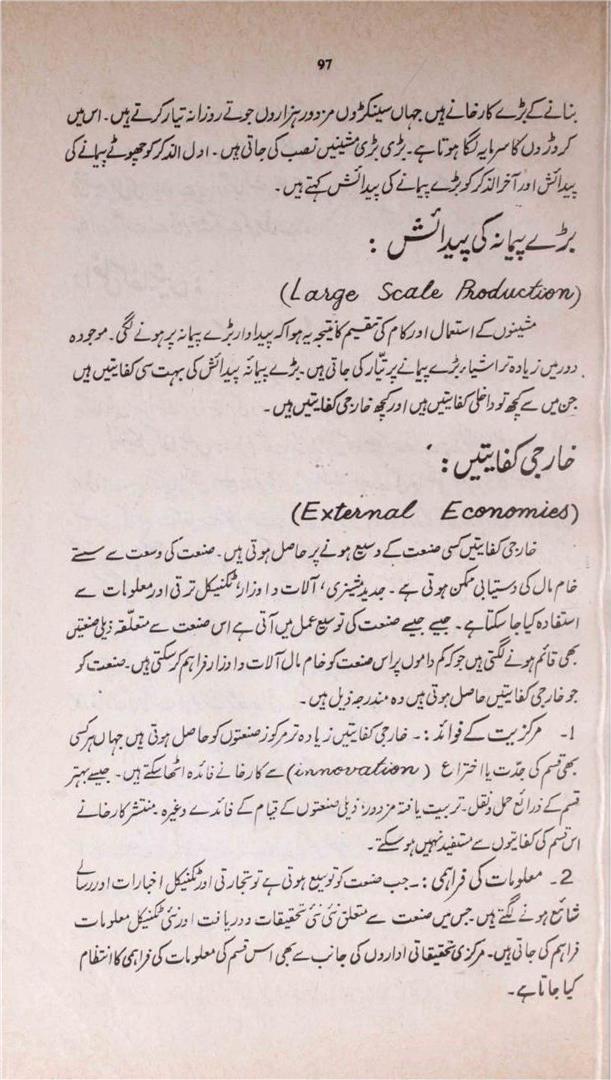 97
بنانے کے بڑے کارخانے ہیں جہاں سینکڑوں مزدور ہزاروں جوتے روزانہ تیار کرتے ہیں۔ اس میں
کروڑوں کا سرمایہ لگا ہوتا ہے۔ بڑی بڑی مشینیں نصب کی جاتی ہیں۔ اول الذکر کو چھوٹے پیمانے کی
پیدائش اور آخر الذکر کو بڑے پیمانے کی پیدائش کہتے ہیں۔
بڑے پیمانہ کی پیدائش :
(Large Scale Production)
مشینوں کے استعمال اور کام کی تقسیم کا نتیجہ یہ ہوا کہ پیداوار بڑے پیمانہ پر ہونے لگی۔ موجودہ
دور میں زیادہ تر اشیاء بڑے پیمانے پر تیّار کی جاتی ہیں۔ بڑے پیمانہ پیدائش کی بہت سی کفایتیں ہیں
جن میں سے کچھ تو داخلی کفایتیں ہیں اور کچھ خارجی کفایتیں ہیں۔
خارجی کفایتیں :
(External Economies)
خارجی کفایتیں کسی صنعت کے وسیع ہونے پر حاصل ہوتی ہیں۔ صنعت کی وسعت سے سستے
خام مال کی دستیابی ممکن ہوتی ہے۔ جدید مشینری، آلات و اوزار، ٹکنیکل ترقی اور معلومات سے
استفادہ کیا جا سکتا ہے۔ جیسے جیسے صنعت کی توسیع عمل میں آتی ہے اس صنعت سے متعلقہ ذیلی صنعتیں
بھی قائم ہونے لگتی ہیں جو کہ کم داموں پر اس صنعت کو خام مال آلات و اوزار فراہم کر سکتی ہیں۔ صنعت کو
جو خارجی کفایتیں حاصل ہوتی ہیں وہ مندرجہ ذیل ہیں۔
1۔ مرکزیت کے فوائد :۔ خارجی کفایتیں زیادہ تر مرکوز صنعتوں کو حاصل ہوتی ہیں جہاں ہر کسی
بھی قسم کی جدّت یا اختراع (innovation) سے کارخانے فائدہ اٹھا سکتے ہیں۔ جیسے بہتر
قسم کے ذرائع حمل و نقل۔ تربیت یافتہ مزدور، ذیلی صنعتوں کے قیام کے فائدے وغیرہ۔ منتشر کارخانے
اس قسم کی کفایتوں سے مستفید نہیں ہو سکتے۔
2۔ معلومات کی فراہمی :۔ جب صنعت کو توسیع ہوتی ہے تو تجارتی اور ٹکنیکل اخبارات اور رسالے
شائع ہونے لگتے ہیں۔ جس میں صنعت سے متعلق نئی نئی تحقیقات و دریافت اور نئی ٹکنیکل معلومات
فراہم کی جاتی ہیں۔ مرکزی تحقیقاتی اداروں کی جانب سے بھی اس قسم کی معلومات کی فراہمی کا انتظام
کیا جاتا ہے۔